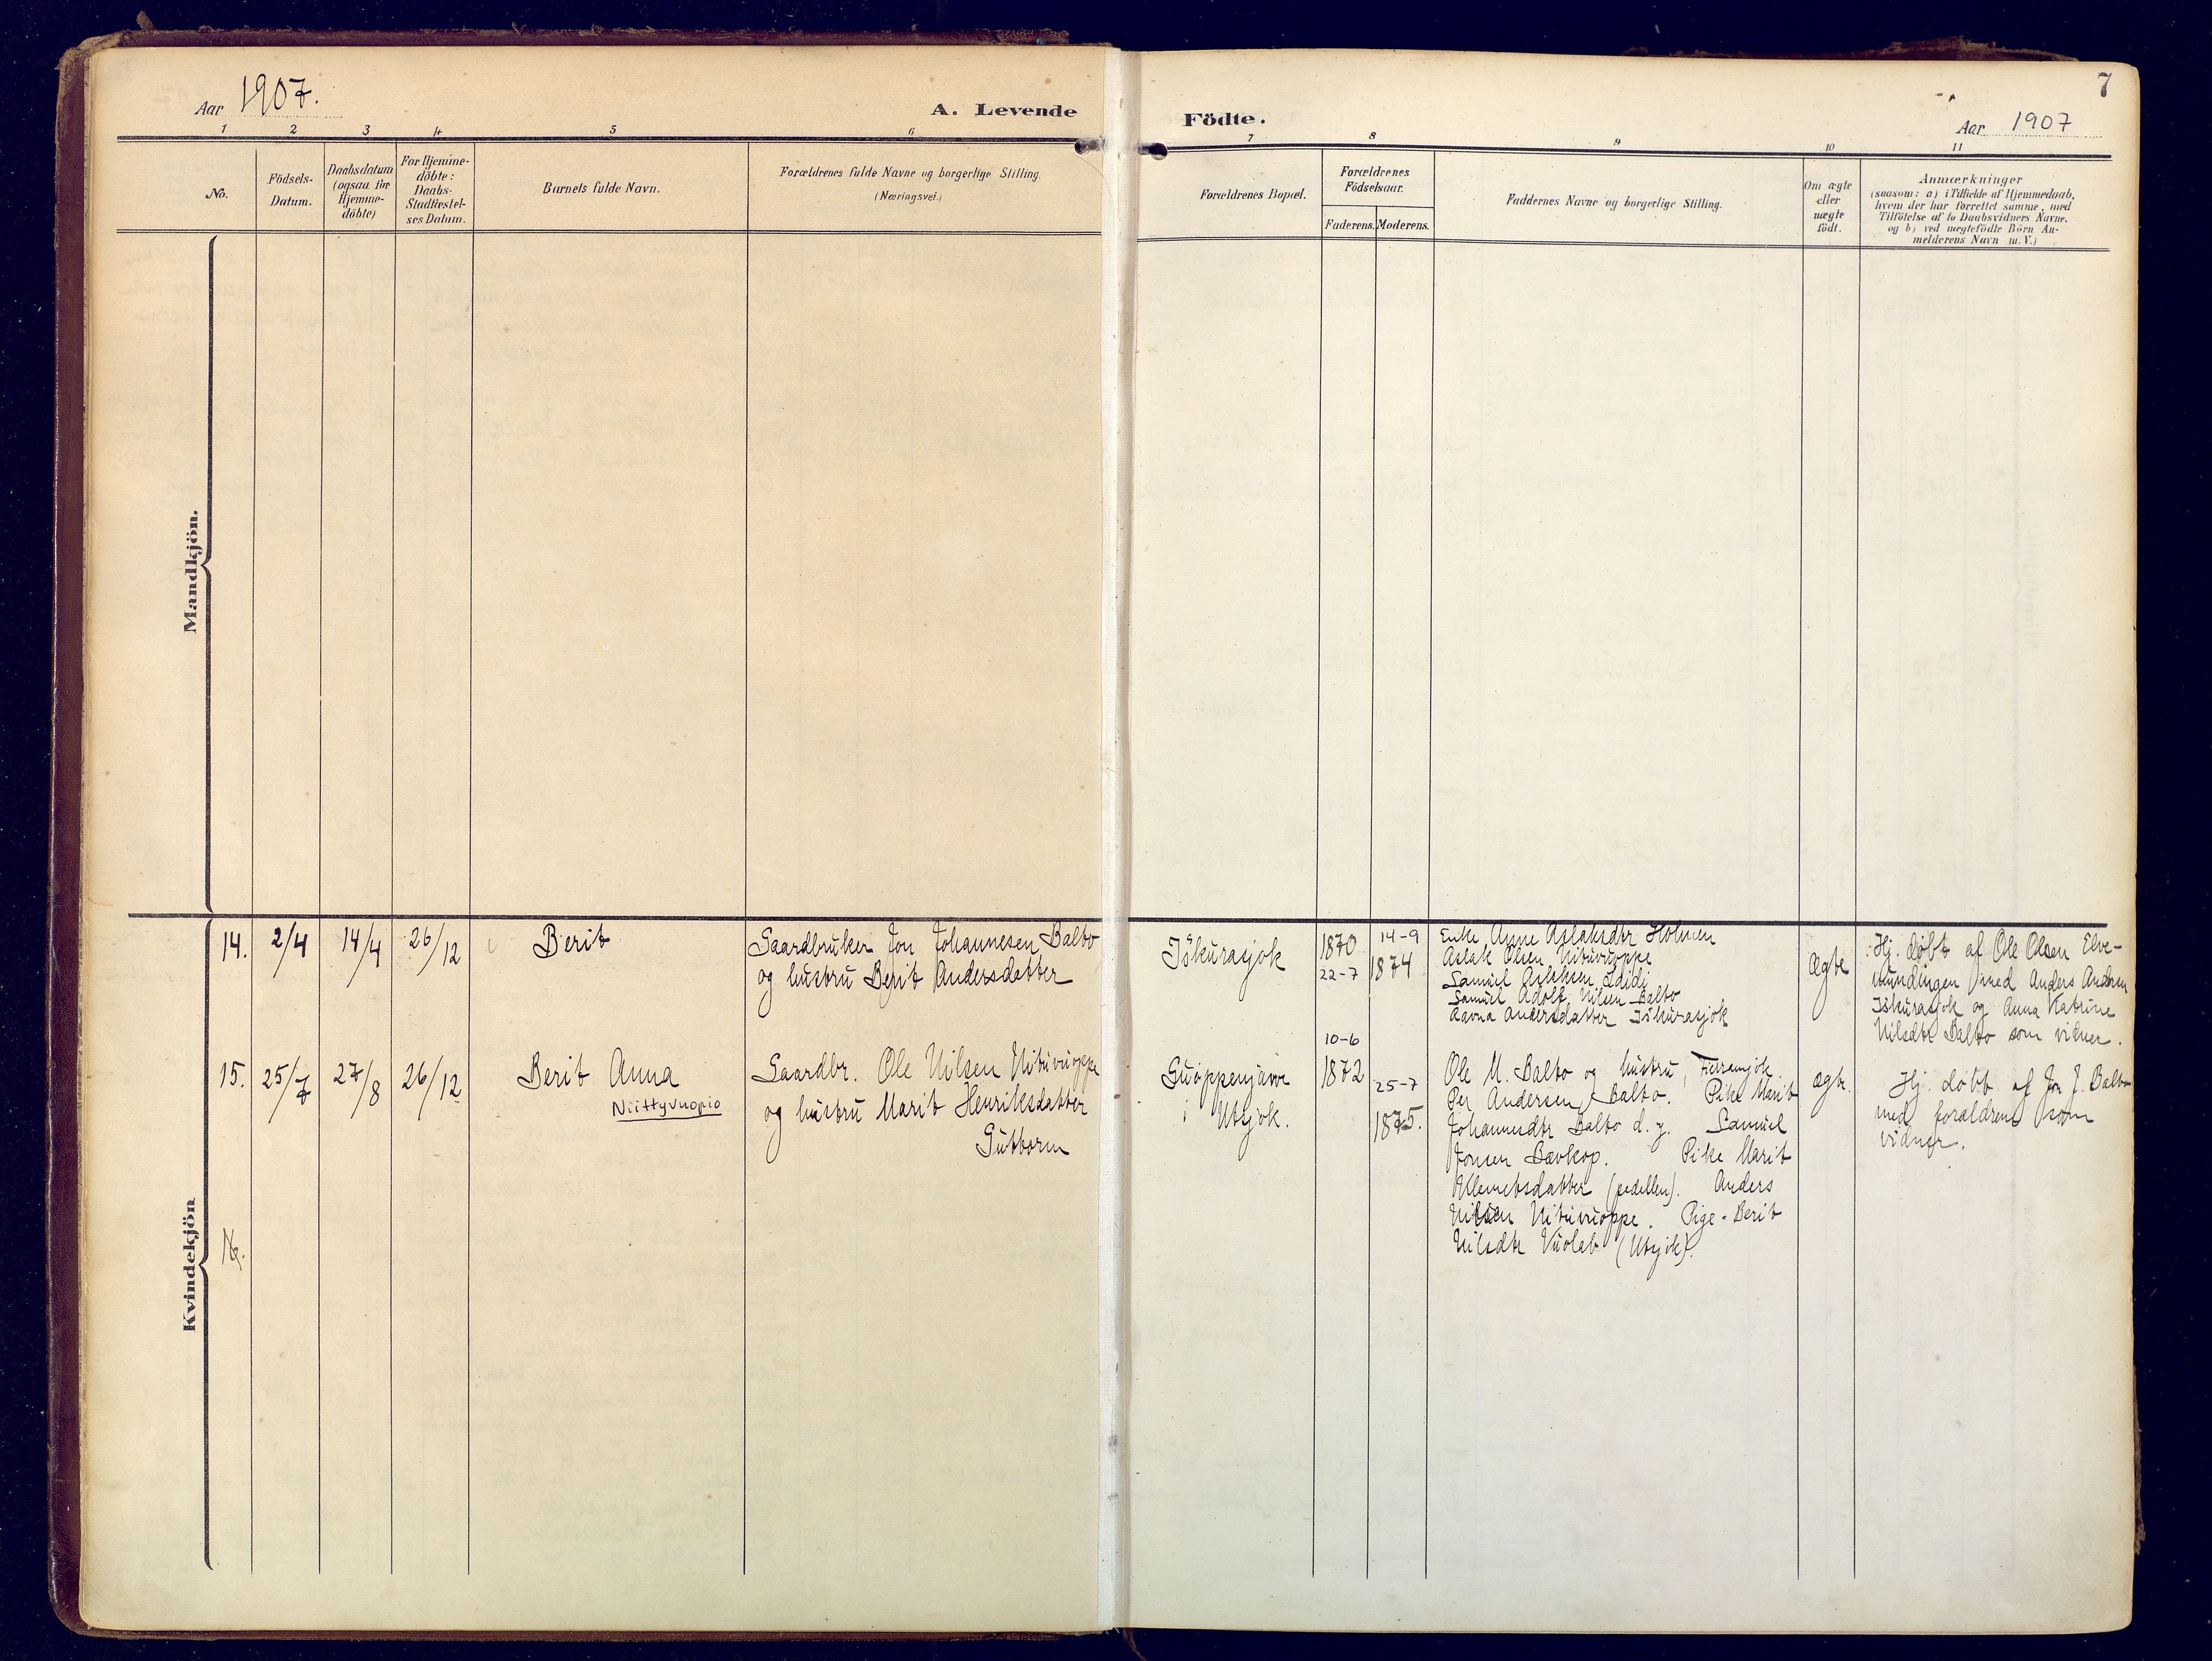 Aar 1907.
A. Levende Födte.
7
Aar 1907
1 2 3 4 5 6 7 8 9 10 11
No.
Födsels-
Datum.
Daabsdatum
(ogsaa for
Hjemme-
döbte)
For Hjemme-
döbte:
Daabs-
Stadfæstel-
ses Datum.
Barnets fulde Navn.
Forældrenes fulde Navne og borgerlige Stilling.
(Næringsvei.)
Forældrenes Bopæl.
Forældrenes
Födselsaar.
Faderens. Moderens.
Faddernes Navne og borgerlige Stilling.
Om ægte
eller
uægte
födt.
Anmærkninger
(saasom: a) i Tilfælde af Hjemmedaab,
hvem der har forrettet samme, med
Tilföielse af to Daabsvidners Navne.
og b) ved uægtefödte Börn An-
melderens Navn m.V.)
Mandkjön.
Kvindekjön
14. 2/4 14/4 26/12 Berit
Gaardbruker Jon Johannesen Balto
og hustru Berit Andersdatter
Iškurasjok
1870
22-7
14-9
1874
Enke Anne Aslaksdtr Holmen
Aslak Olsen Nituvuoppe
Samuel Aslaksen Laidi
Samuel Adolf Nilsen Balto
Aavna Andersdatter Iškurasjok
Ægte
Hj. døbt af Ole Olsen Elve-
mundingen med Anders Andersen
Iskurasjok og Anna Katrine
Nilsdtr Balto som vidner.
15. 25/7 27/8 26/12 Berit Anna
Niittyvuopio
Gaardbr. Ole Nilsen Nituvuoppe
og hustru Marit Henriksdatter
Guttorm
Guoppenjavve
i Utsjok.
10-6
1872
25-7
1875.
Ole M. Balto og hustru,
Per Andersen Balto. Pike Marit
Johannesdtr Balto d. y. Samuel
Jonsen Bavkop. Pike Marit
Klemetsdatter (pedellen). Anders
Nilsen Nituvuoppe. Pige Berit
Nilsdtr Vuolab (Utsjok).
ægte.
Hj. døbt af Jon J. Balto
med forældrene som
vidner.